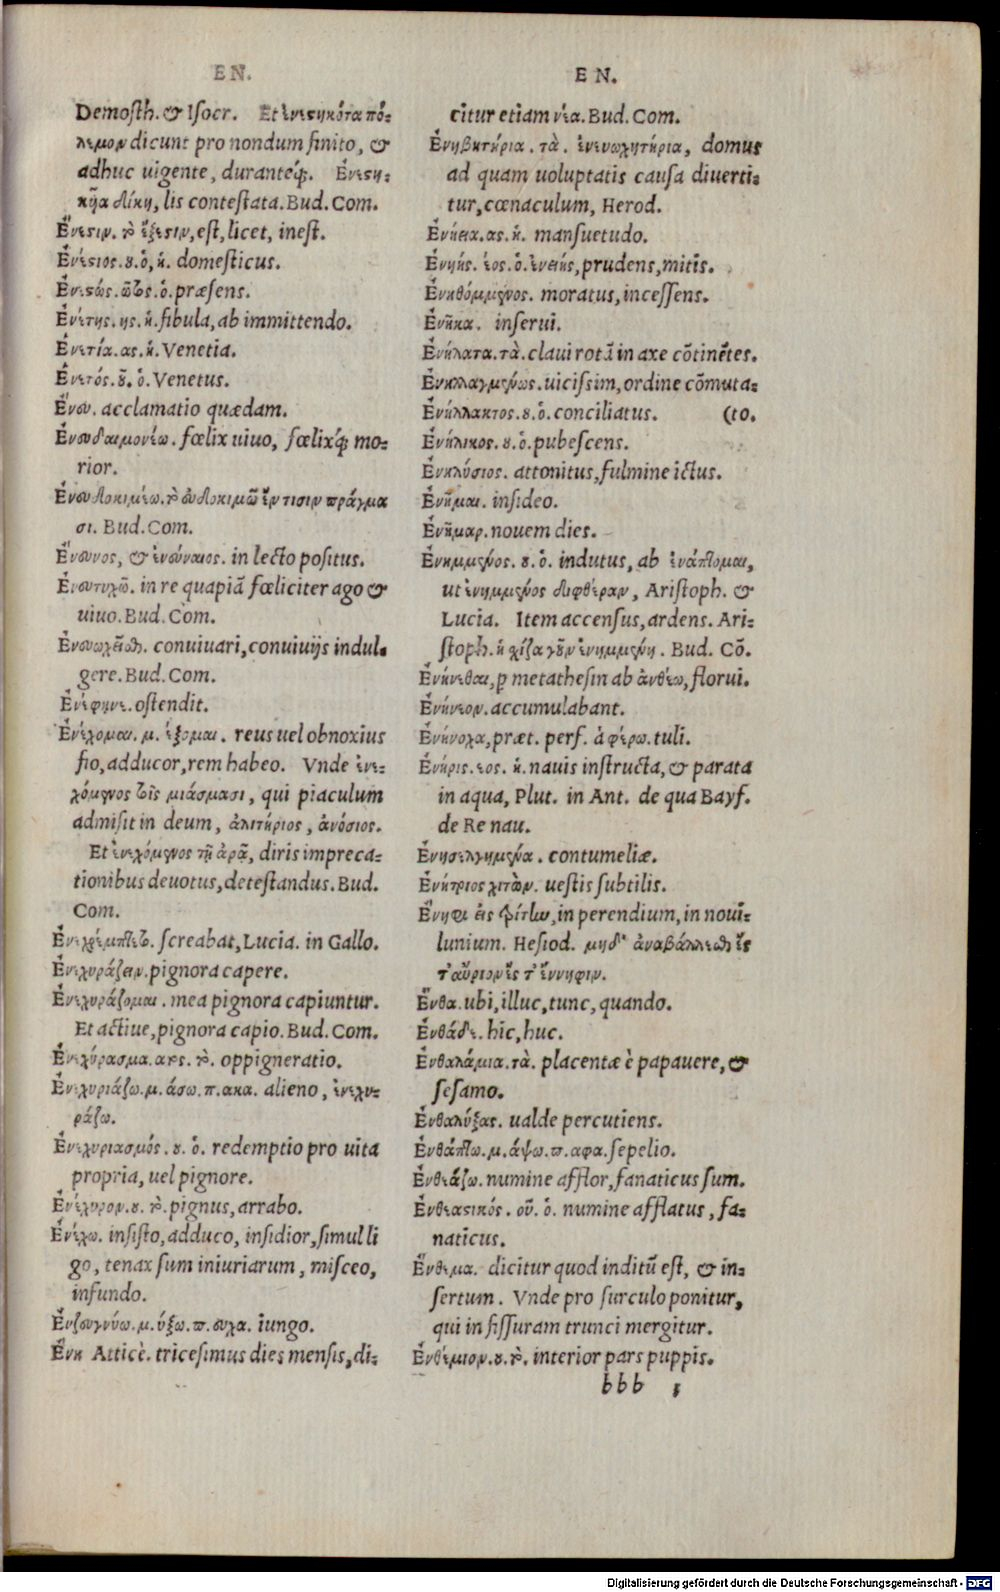 EN.
Demosth. & Isocr. Et ἐνεστηκότα πό-
λεμον dicunt pro nondum finito, &
adhuc uigente, duranteq́;. Ἐνεστη-
κῆα δίκη, lis contestata. Bud. Com.
Ἔνεστιν. τὸ ἔξεστιν, est, licet, inest.
Ἐνέστιος. ου. ὁ, ἡ. domesticus.
Ἐνεστώς. ῶτος. ὁ. præsens.
Ἐνέτης. ης. ἡ. fibula, ab immittendo.
Ἐνετία. ας. ἡ. Venetia.
Ἐνετός. οῦ. ὁ. Venetus.
Ἔνευ. acclamatio quædam.
Ἐνευδαιμονέω. fœlix uiuo, fœlixq́; mo-
rior.
Ἐνευδοκιμέω. τὸ εὐδοκιμῶ ἔν τισιν πράγμα
σι. Bud. Com.
Ἔνευνος, & ἐνεύναιος. in lecto positus.
Ἐνευτυχῶ. in re quapiã fœliciter ago &
uiuo. Bud. Com.
Ἐνευωχεῖσθαι. conuiuari, conuiuijs indul-
gere. Bud. Com.
Ἐνέφηνε. ostendit.
Ἐνέχομαι. μ. έξομαι. reus uel obnoxius
fio, adducor, rem habeo. Vnde ἐνε-
χόμενος τοῖς μιάσμασι, qui piaculum
admisit in deum, ἀλιτήριος, ἀνόσιος.
Et ἐνεχόμενος τῇ ἀρᾷ, diris impreca-
tionibus deuotus, detestandus. Bud.
Com.
Ἐνεχρέμπτετο. screabat, Lucia. in Gallo.
Ἐνεχυράζειν. pignora capere.
Ἐνεχυράζομαι. mea pignora capiuntur.
Et actiue, pignora capio. Bud. Com.
Ἐνεχύρασμα. ατος. τὸ. oppigneratio.
Ἐνεχυριάζω. μ. άσω. π. ακα. alieno, ἐνεχυ-
ράζω.
Ἐνεχυριασμός. ου. ὁ. redemptio pro uita
propria, uel pignore.
Ἐνέχυρον. ου. τὸ. pignus, arrabo.
Ἐνέχω. insisto, adduco, insidior, simul li
go, tenax sum iniuriarum, misceo,
infundo.
Ἐνζευγνύω. μ. ύξω. π. ευχα. iungo.
Ἔνη Atticè. tricesimus dies mensis, di-
EN.
citur etiam νέα. Bud. Com.
Ἐνηβητήρια. τὰ. ἐνευωχητήρια, domus
ad quam uoluptatis causa diuerti-
tur, cœnaculum, Herod.
Ἐνήεια. ας. ἡ. mansuetudo.
Ἐνηής. έος. ὁ. ἐνειής, prudens, mitis.
Ἐνηθόμμενος. moratus, incessens.
Ἐνῆκα. inserui.
Ἐνήλατα. τὰ. claui rotã in axe cõtinẽtes.
Ἐνηλλαγμένως. uicissim, ordine cõmuta-
(to.
Ἐνήλλακτος. ου. ὁ. conciliatus.
Ἐνήλικος. ου. ὁ. pubescens.
Ἐνηλύσιος. attonitus, fulmine ictus.
Ἐνῆμαι. insideo.
Ἐνῆμαρ. nouem dies.
Ἐνημμένος. ου. ὁ. indutus, ab ἐνάπτομαι,
ut ἐνημμένος διφθέραν, Aristoph. &
Lucia. Item accensus, ardens. Ari-
stoph. ἡ σχίζα γοῦν ἐνημμένη. Bud. Cõ.
Ἐνήνεθαι, p metathesin ab ἀνθέω, florui.
Ἐνήνεον. accumulabant.
Ἐνήνοχα, præt. perf. ἀ φέρω. tuli.
Ἐνήρις. εος. ἡ. nauis instructa, & parata
in aqua, Plut. in Ant. de qua Bayf.
de Re nau.
Ἐνησελγημένα. contumeliæ.
Ἐνήτριος χιτὼν. uestis subtilis.
Ἔνηφι εἰς τρίτην, in perendium, in noui-
lunium. Hesiod. μηδ' ἀναβάλλεσθαι ἔς
τ' αὔριον ἔς τ' ἔννηφιν.
Ἔνθα. ubi, illuc, tunc, quando.
Ἐνθάδε. hic, huc.
Ἐνθαλάμια. τὰ. placentæ è papauere, &
sesamo.
Ἐνθαλύξας. ualde percutiens.
Ἐνθάπτω. μ. άψω. π. αφα. sepelio.
Ἐνθεάζω. numine afflor, fanaticus sum.
Ἐνθεαστικός. οῦ. ὁ. numine afflatus, fa-
naticus.
Ἔνθεμα. dicitur quod inditũ est, & in-
sertum. Vnde pro surculo ponitur,
qui in fissuram trunci mergitur.
Ἐνθέμιον. ου. τὸ. interior pars puppis.
bbb 1
Digitalisierung gefördert durch die Deutsche Forschungsgemeinschaft - DFG